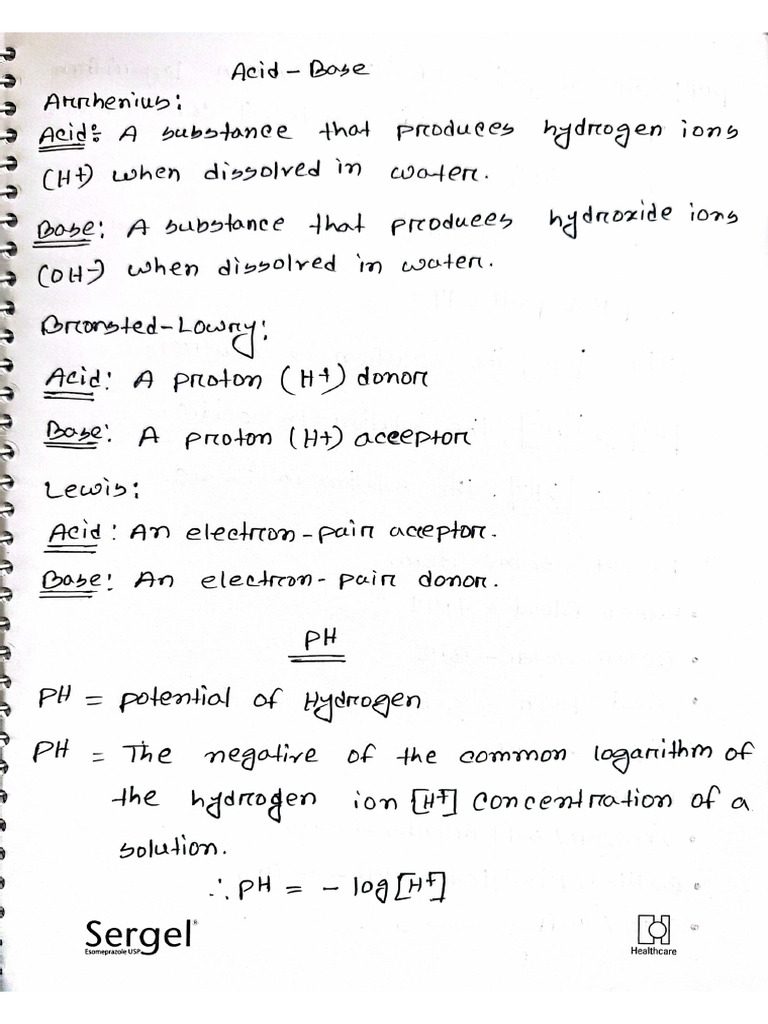 Acid - Base
Arrhenius:
Acid: A substance that produces hydrogen ions
(H+) when dissolved in water.
Base: A substance that produces hydroxide ions
(OH-) when dissolved in water.
Bronsted-Lowry:
Acid: A proton (H+) donor
Base: A proton (H+) acceptor
Lewis:
Acid: An electron-pair acceptor.
Base: An electron-pair donor.
PH
PH = potential of Hydrogen
PH = The negative of the common logarithm of
the hydrogen ion [H+] concentration of a
solution.
∴ PH = - log [H+]
Sergel®
Esomeprazole USP
Healthcare